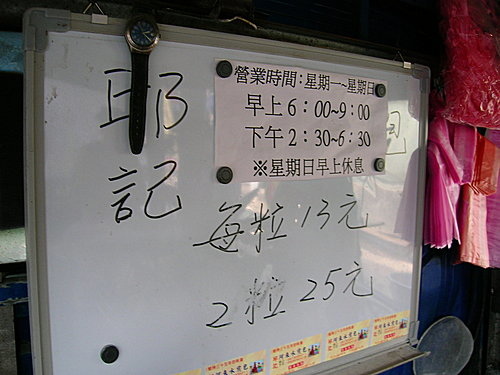 耶記
營業時間：星期一~星期日
早上6：00~9：00
下午2：30~6：30
※星期日早上休息
每粒13元
2粒25元